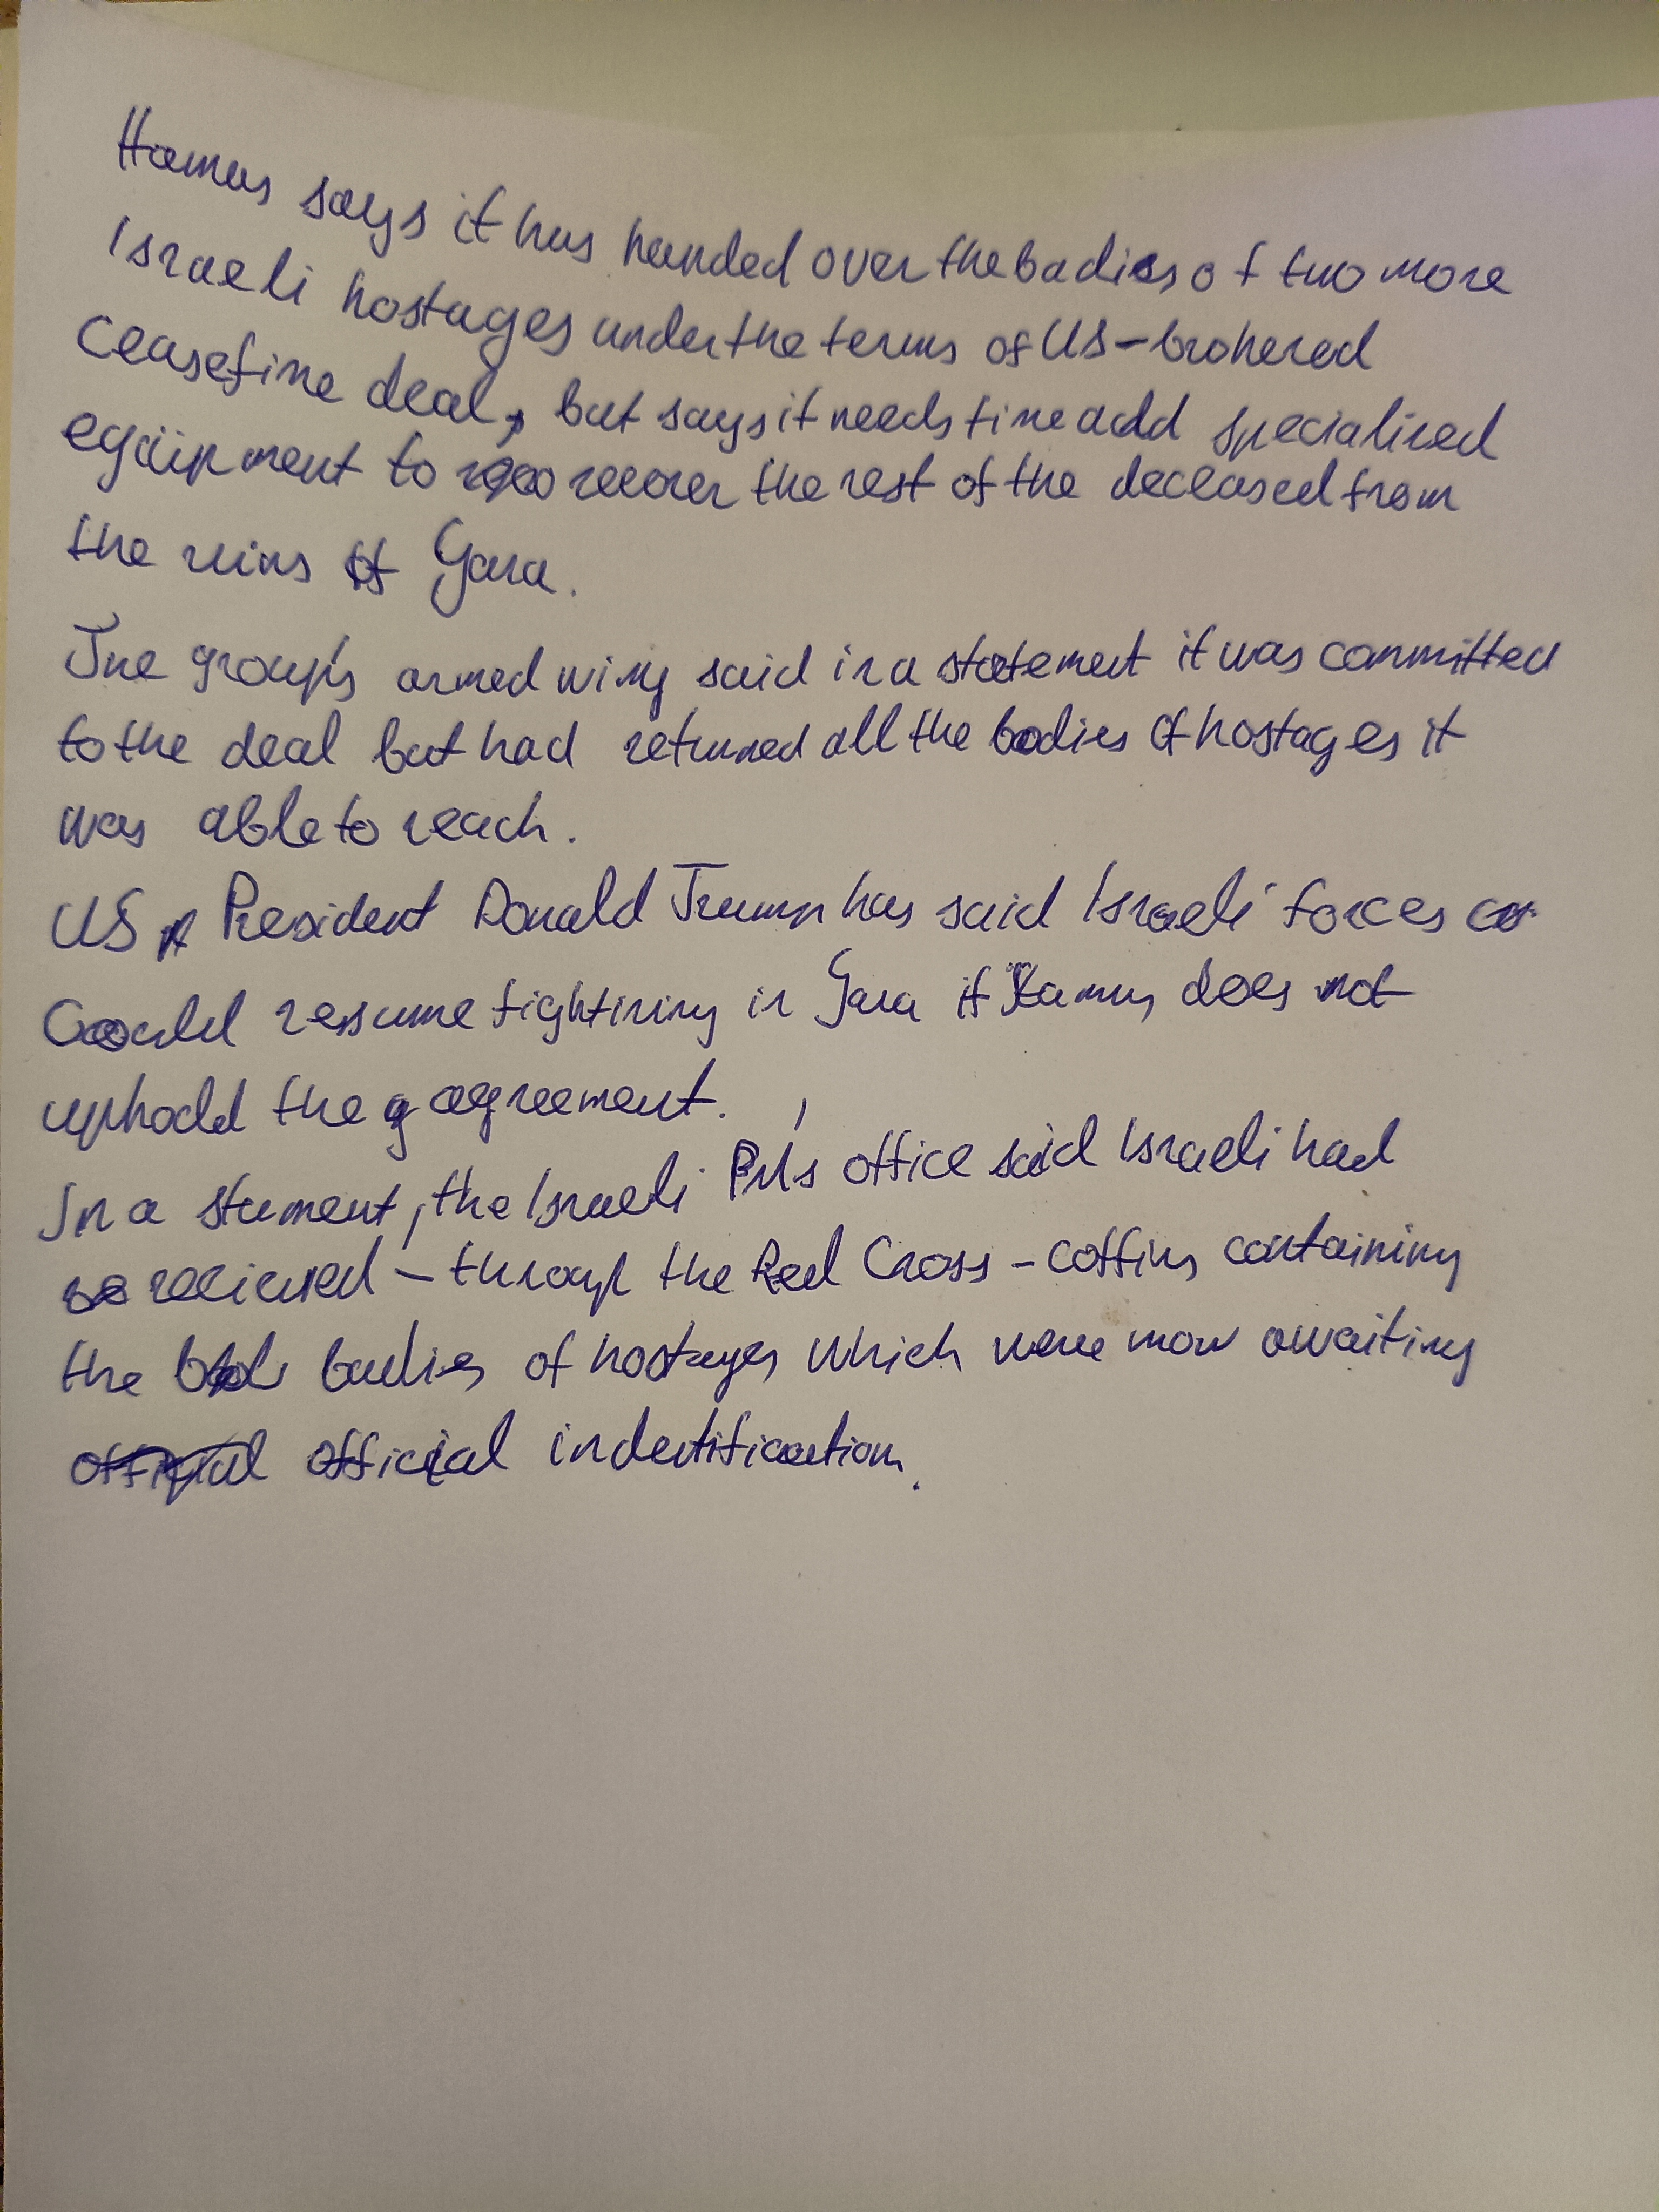 Hamas says it has handed over the bodies of two more
Israeli hostages under the terms of US-brokered
ceasefire deal, but says it needs time add specialized
equipment to recover the rest of the deceased from
the ruins of Gaza.
The group's armed wing said in a statement it was committed
to the deal but had returned all the bodies of hostages it
was able to reach.
US President Donald Trump has said Israeli forces co
Coould resume fightining in Gaza if Hamas does not
uphodld the g agreement.
In a stument, the Israeli PM's office said Israeli had
recieved - through the Red Cross - coffins containing
the bodies of hostages which were now awaiting
official official indentification.